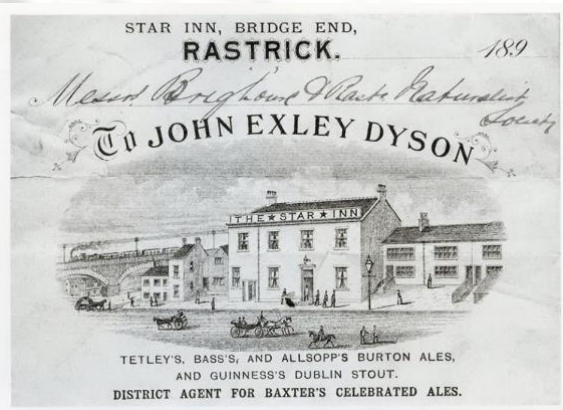 STAR INN, BRIDGE END,
RASTRICK.
189
Messrs Brighouse & Rastk Naturalist
Society
To JOHN EXLEY DYSON
THE ★ STAR ★ INN
TETLEY'S, BASS'S, AND ALLSOPP'S BURTON ALES,
AND GUINNESS'S DUBLIN STOUT.
DISTRICT AGENT FOR BAXTER'S CELEBRATED ALES.